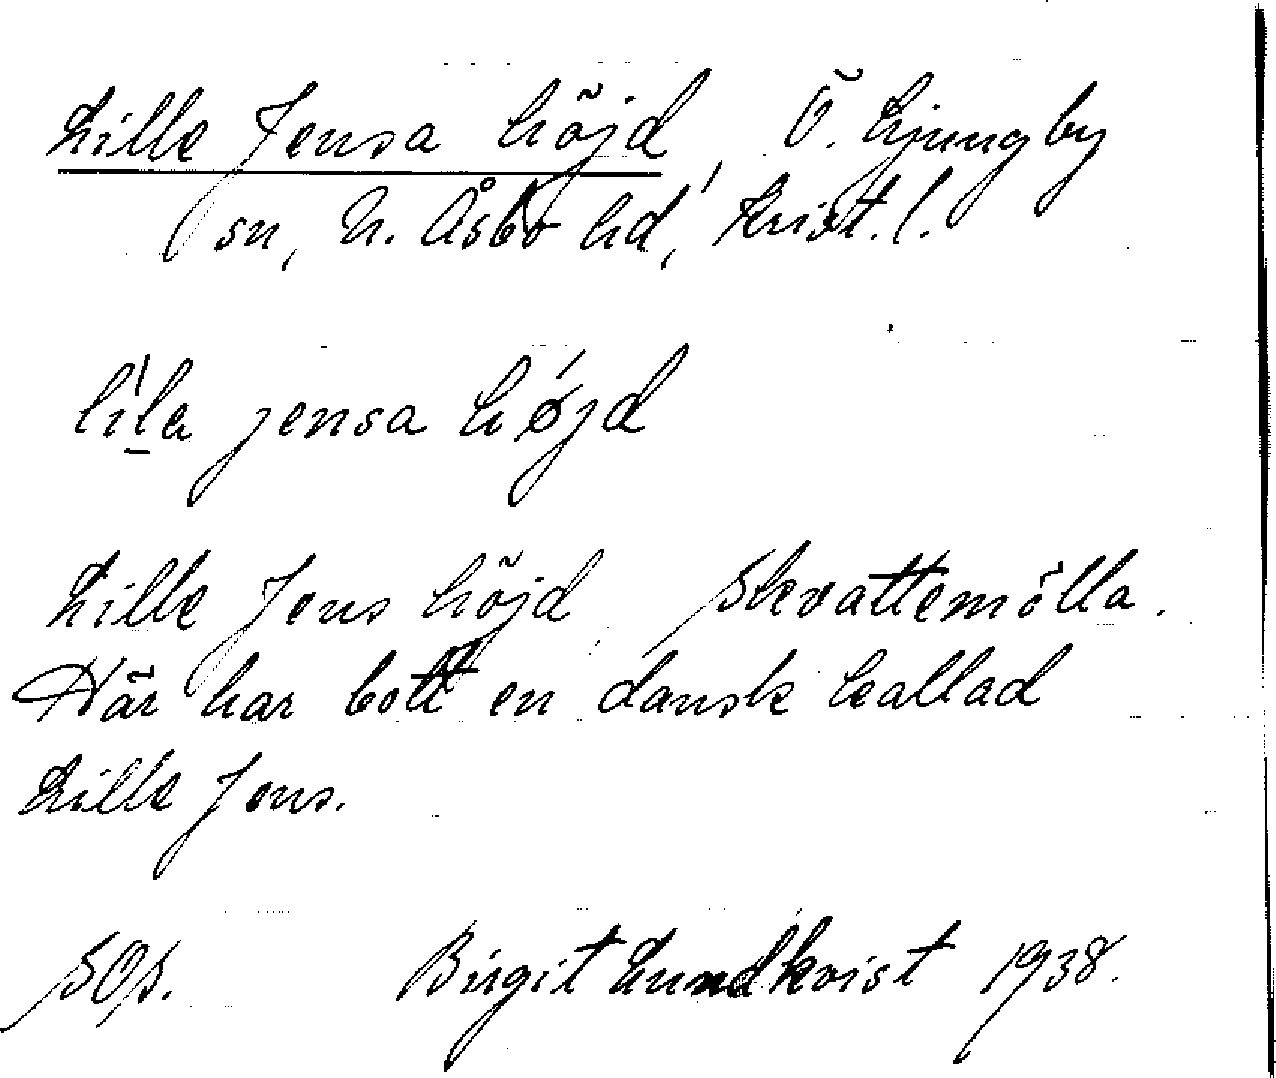 Lille Jensa höjd, Ö. Ljungby
sn, N. Åsbo hd, Krist. l.
lìla jensa hǿjd
Lille Jens höjd, Skvattemölla.
Här har bott en dansk kallad
Lille Jens.
Birgit Lundkvist 1938.